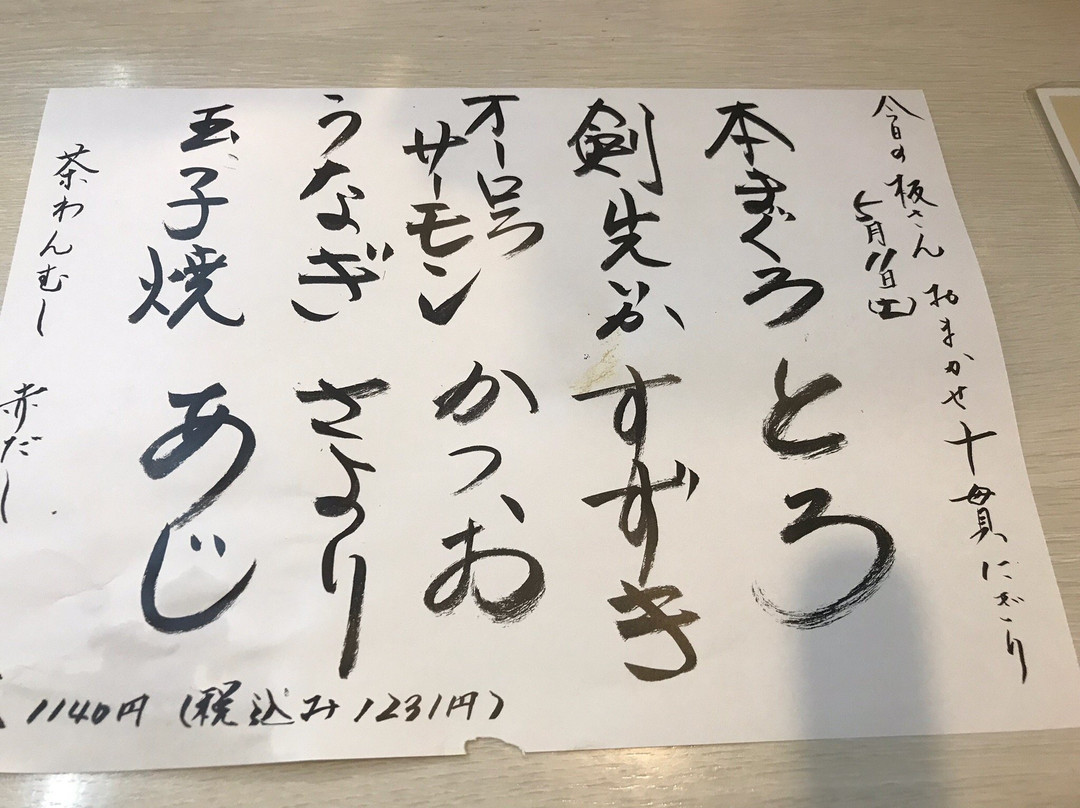 今日の板さん おまかせ十貫にぎり
5月11日(土)
本まぐろ とろ
剣先いか すずき
オーロラサーモン かつお
うなぎ さより
玉子焼 あじ
茶わんむし 赤だし
1140円(税込み1231円)